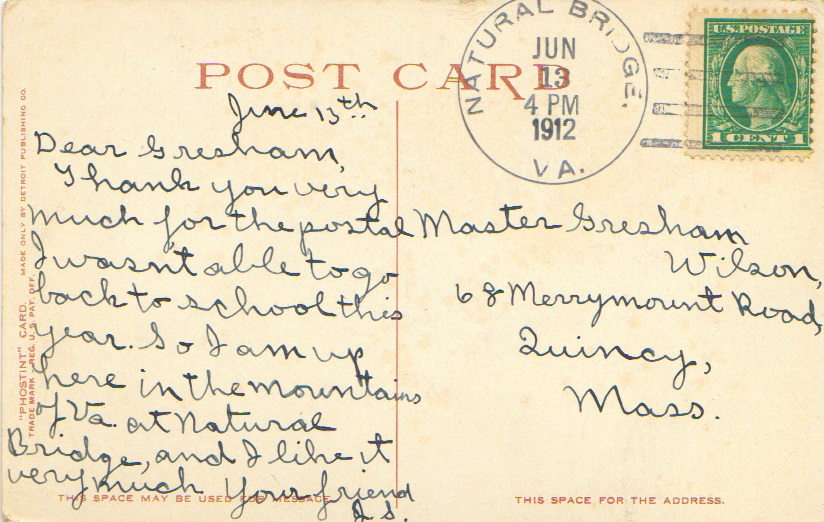 NATURAL BRIDGE.
JUN
13
4 PM
1912
VA.
U.S. POSTAGE
1 CENT 1
POST CARD
June 13th
Dear Gresham,
Thank you very
much for the postal
I wasn't able to go
back to school this
year. So I am up
here in the mountains
of Va. at Natural
Bridge, and I like it
very much Your friend
J.S.
Master Gresham
Wilson,
68 Merrymount Road,
Quincy,
Mass.
THIS SPACE MAY BE USED FOR MESSAGE.
THIS SPACE FOR THE ADDRESS.
"PHOSTINT" CARD. MADE ONLY BY DETROIT PUBLISHING CO.
TRADE MARK - REG. U.S. PAT. OFF.